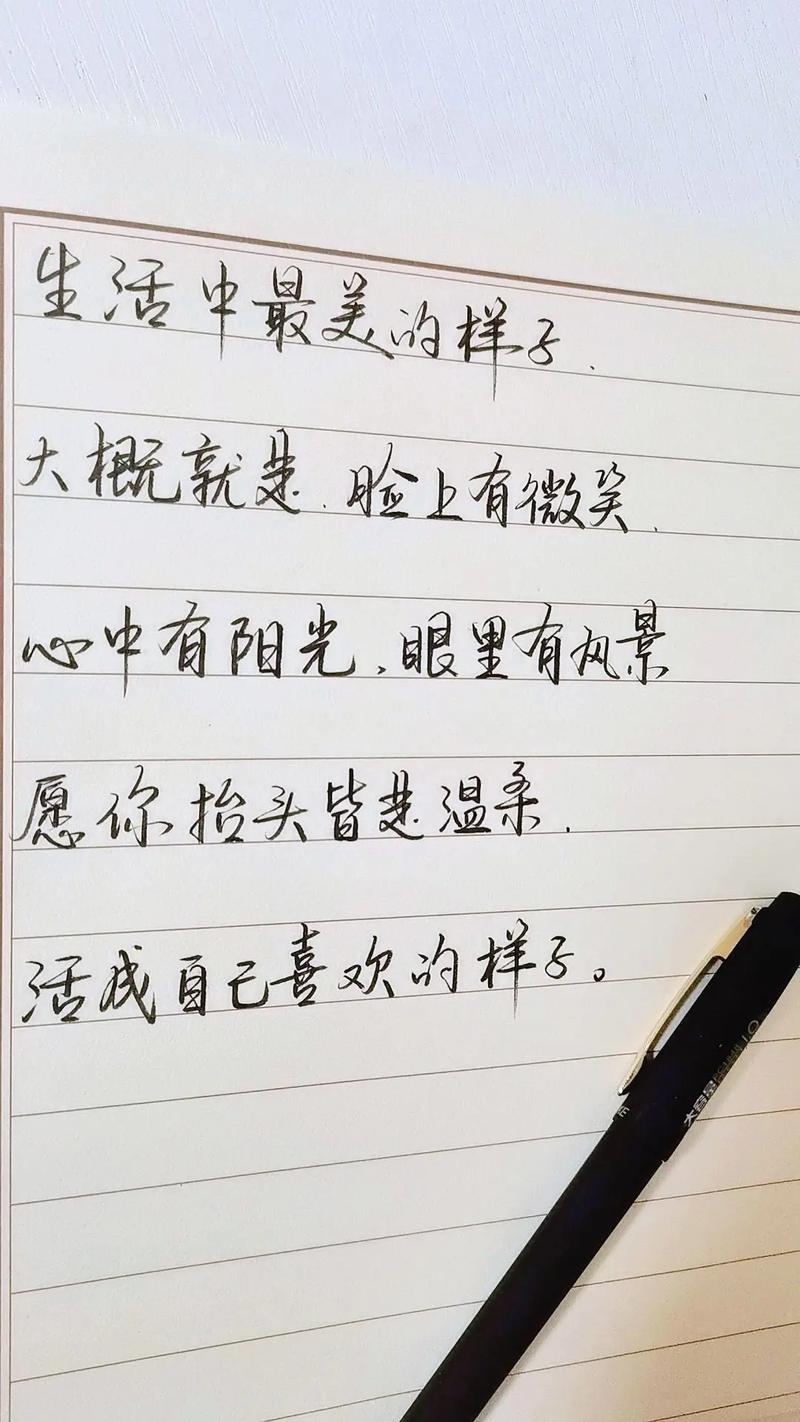 生活中最美的样子.
大概就是.脸上有微笑.
心中有阳光、眼里有风景
愿你抬头皆是温柔.
活成自己喜欢的样子。
大容量